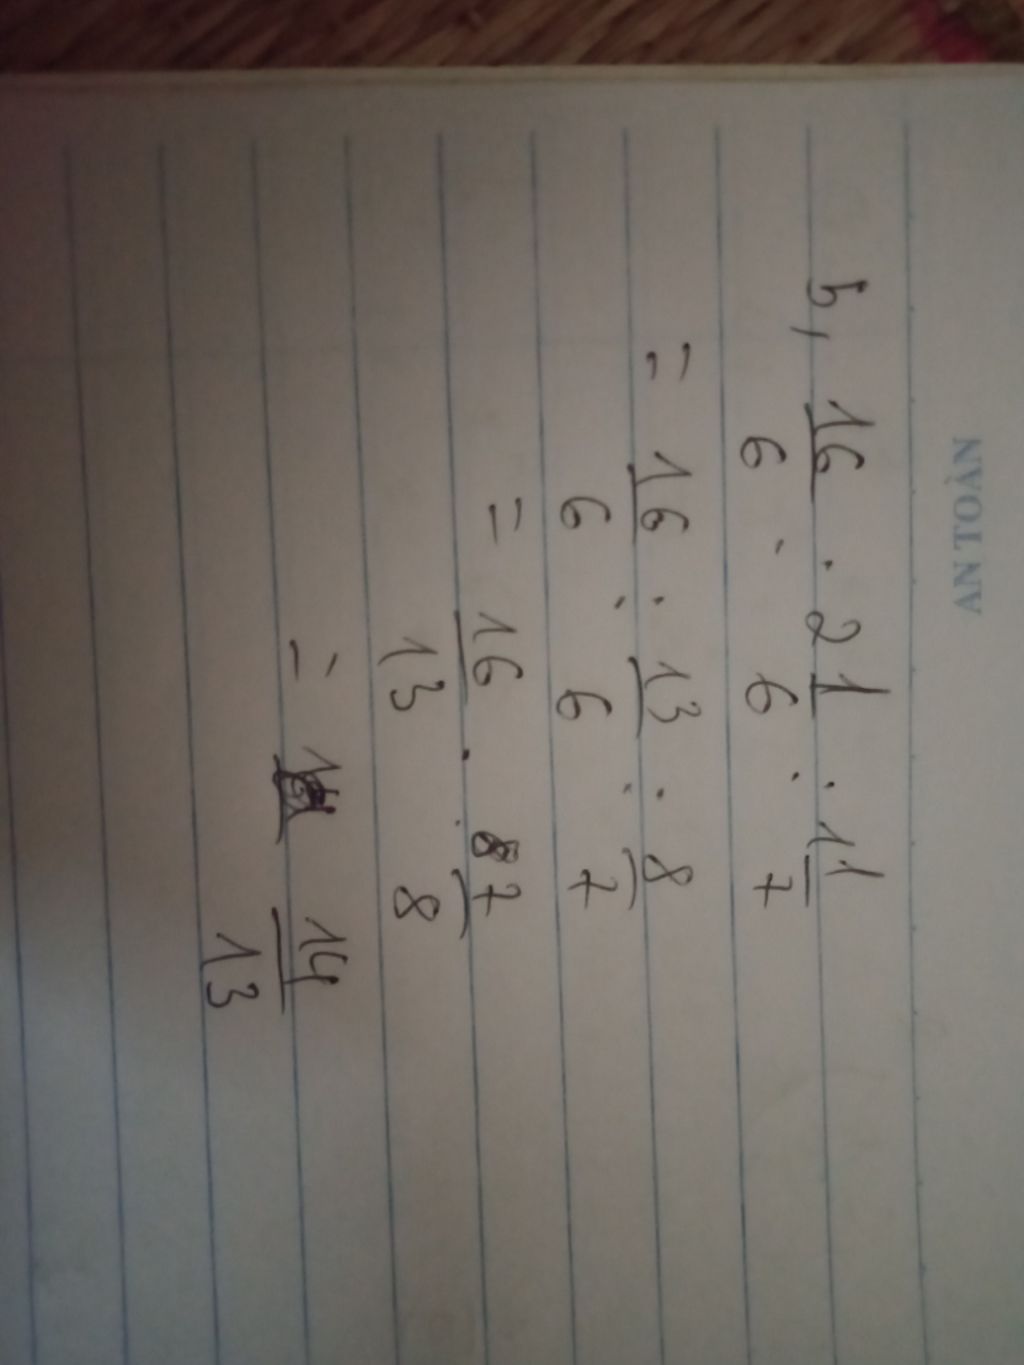 AN TOÀN
b, 16/6 : 2 1/6 : 11/7
= 16/6 : 13/6 : 8/7
= 16/13 . 7/8
= 14/13